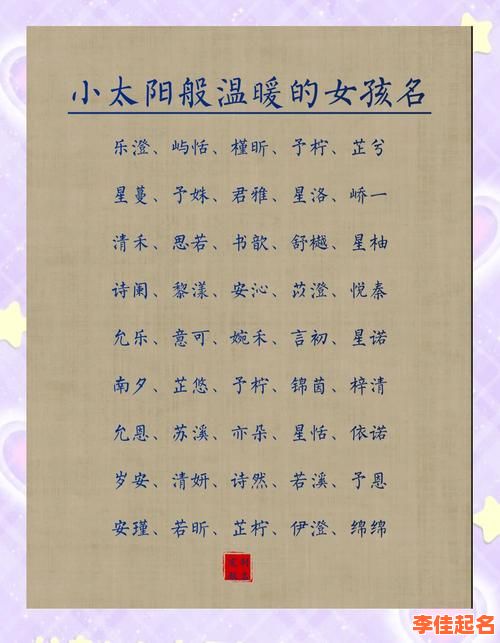 小太阳般温暖的女孩名
乐澄、屿恬、槿昕、予柠、芷兮
星蔓、予姝、君雅、星洛、峤一
清禾、思若、书歆、舒樾、星柚
诗阑、黎漾、安沁、苡澄、悦秦
允乐、意可、婉禾、言初、星诺
南夕、芷悠、予柠、锦茵、梓清
允恩、苏溪、亦朵、星恬、依诺
岁安、清妍、诗然、若溪、予恩
安瑾、若昕、芷柠、伊澄、绵绵
李佳起名